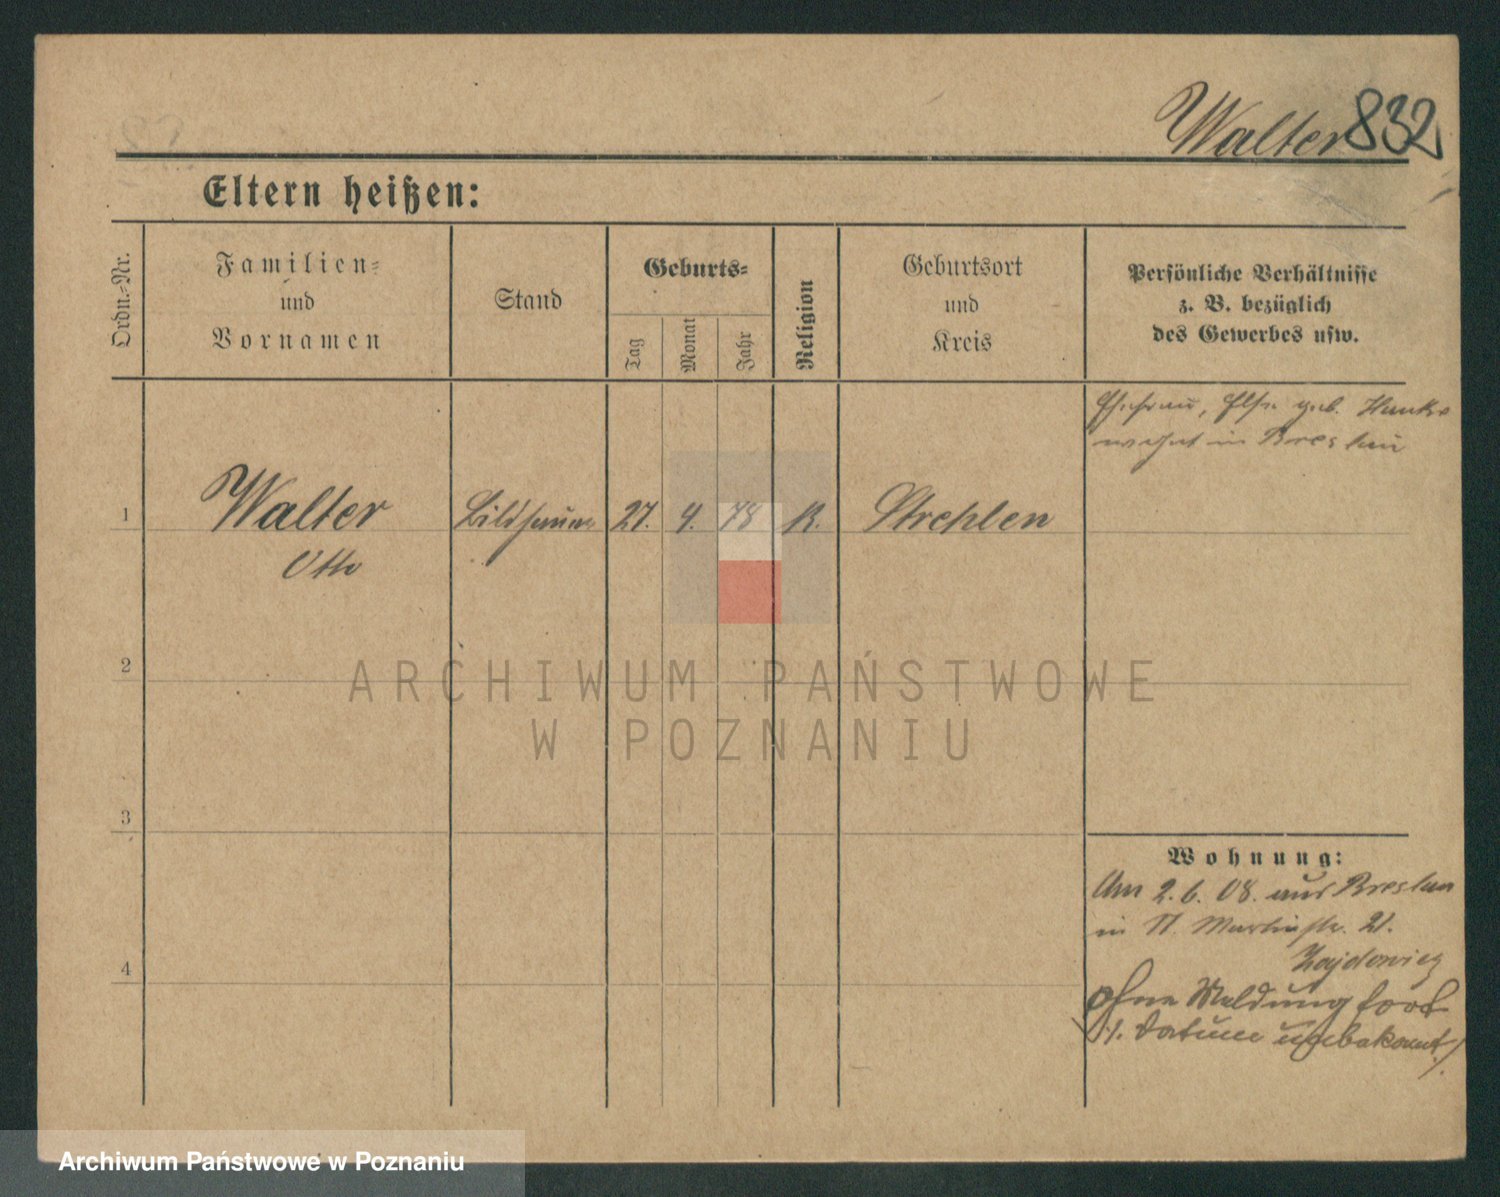 Walter 832
Eltern heißen:
Ordn.-Nr.
Familien-
und
Vornamen
Stand
Geburts-
Tag
Monat
Jahr
Religion
Geburtsort
und
Kreis
Persönliche Verhältnisse
z. B. bezüglich
des Gewerbes usw.
Ehefrau, Else geb. Hanke
wohnt in Breslau
1 Walter Bildhauer 27. 4. 78 K. Strehlen
Otto
2
3
4
Wohnung:
Am 2.6.08. aus Breslau
in St. Martinstr. 21.
ohne Meldung fort
./. Datum unbekannt ./.
ARCHIWUM PAŃSTWOWE
W POZNANIU
Archiwum Państwowe w Poznaniu